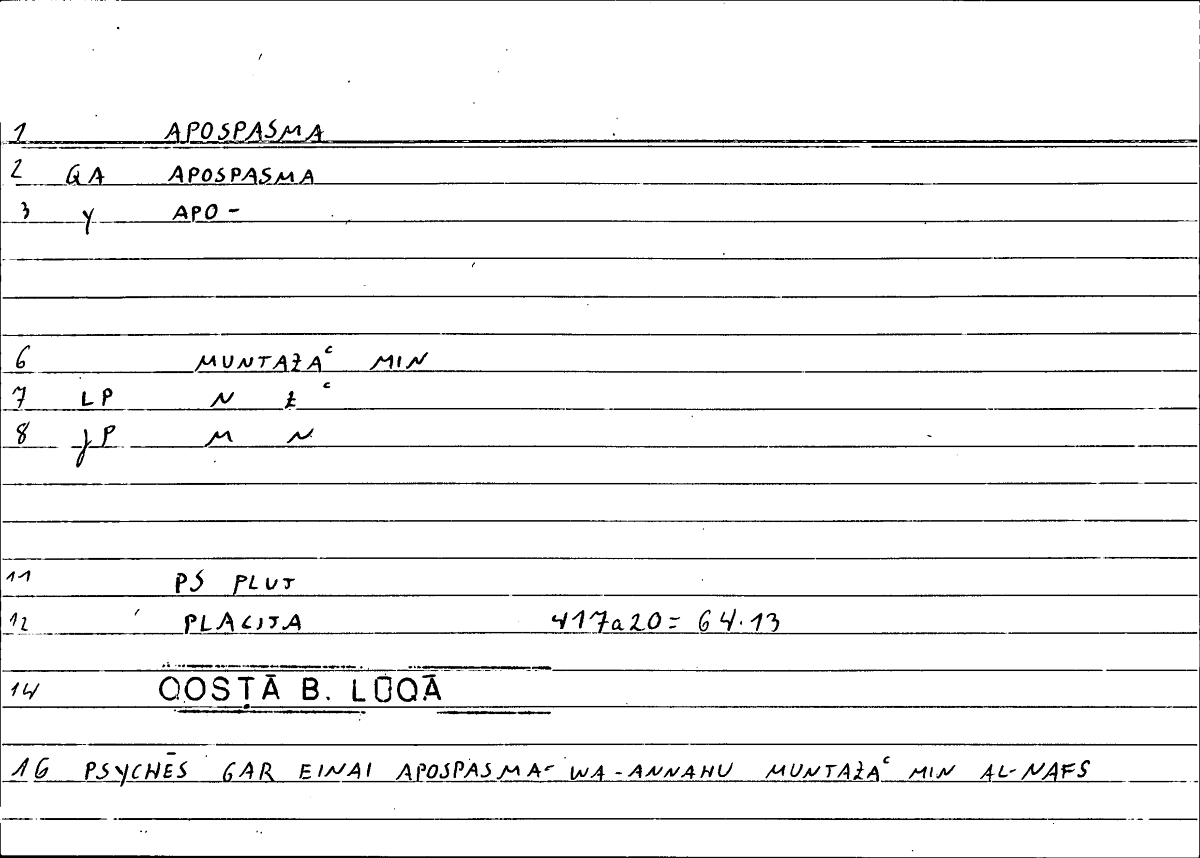 1 APOSPASMA
2 GA APOSPASMA
3 y APO-
6 MUNTAŻAᶜ MIN
7 LP N Ż ᶜ
8 JP M N
11 PS PLUT
12 PLACITA 417a20= 64.13
14 QOSṬĀ B. LŪQĀ
16 PSYCHĒS GAR EINAI APOSPASMA= WA-ANNAHU MUNTAŻAᶜ MIN AL-NAFS